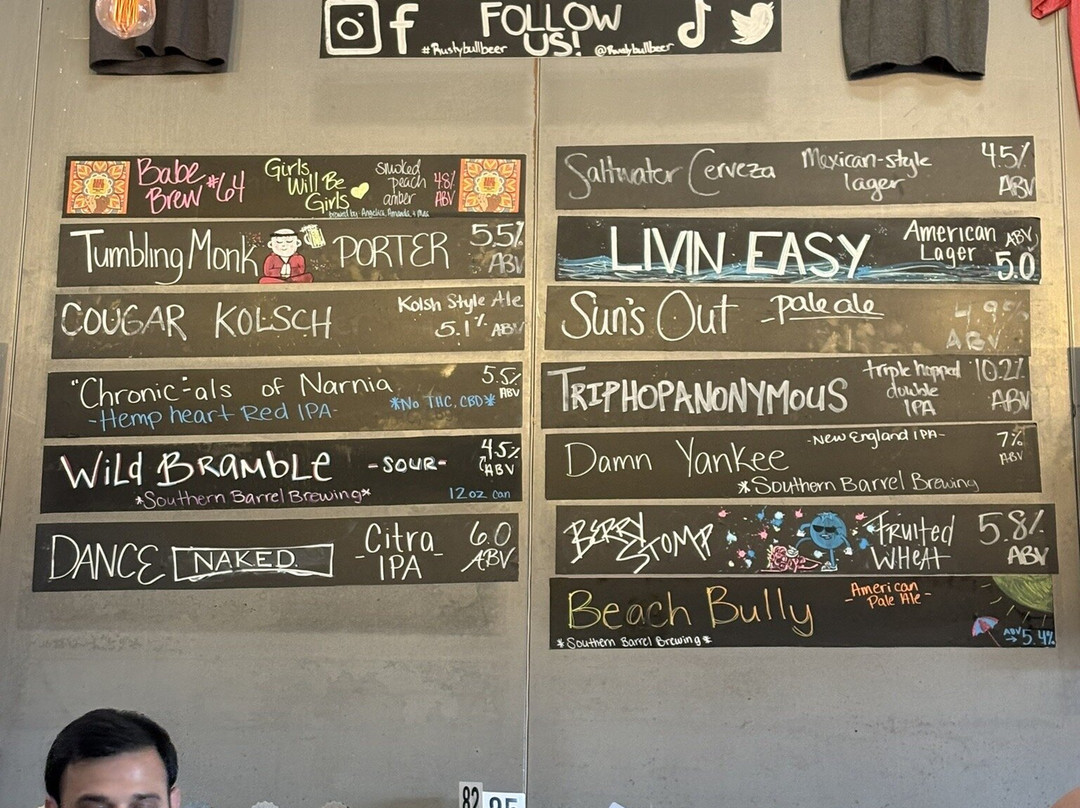 FOLLOW
US!
#Rustybullbeer
@Rustybullbeer
Babe
Brew #64
Girls
Will Be
Girls
brewed by: Angelica, Amanda, + Mac
smoked
peach
amber
4.8%
ABV
Tumbling Monk PORTER 5.5%
ABV
COUGAR KOLSCH
Kolsh Style Ale
5.1% ABV
"Chronic"-als of Narnia
-Hemp heart Red IPA-
*No THC, CBD*
5.5%
ABV
Wild Bramble -SOUR-
4.5%
ABV
*Southern Barrel Brewing*
12oz can
DANCE NAKED.
-Citra-
IPA
6.0
ABV
Saltwater Cerveza
Mexican-style
lager
4.5%
ABV
LIVIN EASY
American
Lager
ABV
5.0
Sun's Out -pale ale
4.9%
ABV
TRIPHOPANONYMOUS
triple hopped
double
IPA
10.2%
ABV
Damn Yankee
-New England IPA-
7%
ABV
*Southern Barrel Brewing
BERRY
STOMP
Fruited
WHEAT
5.8%
ABV
Beach Bully
American
-Pale Ale-
*Southern Barrel Brewing*
ABV
→5.4%
82